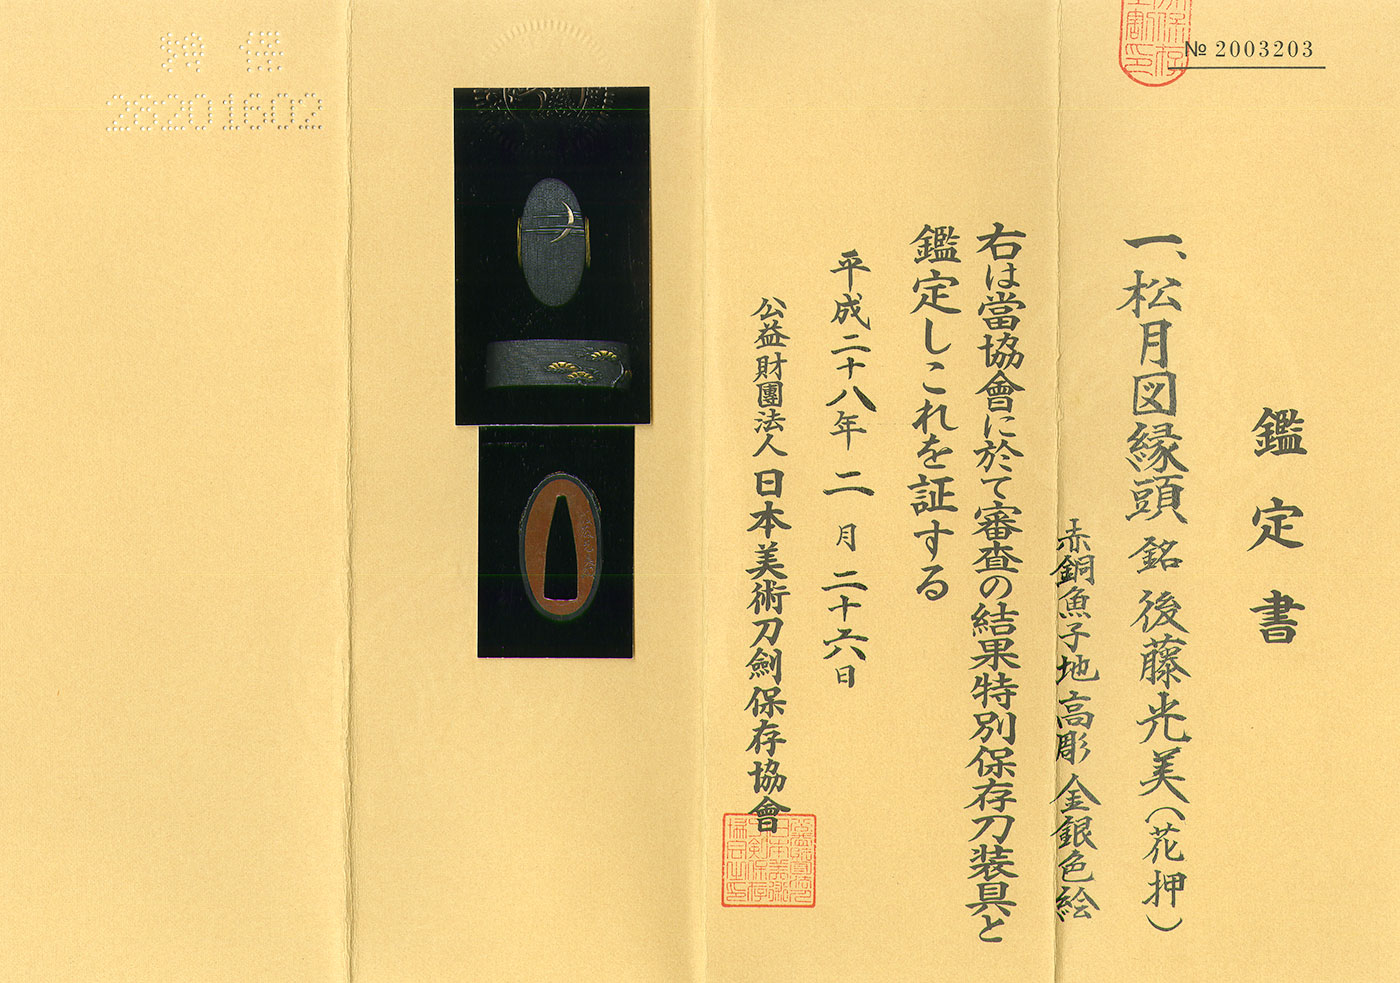 № 2003203
鑑定書
一、松月図縁頭 銘 後藤光美(花押)
赤銅魚子地 高彫 金銀色絵
右は當協會に於て審査の結果特別保存刀装具と
鑑定しこれを証する
平成二十八年 二月 二十六日
公益財團法人 日本美術刀劍保存協會
28201602